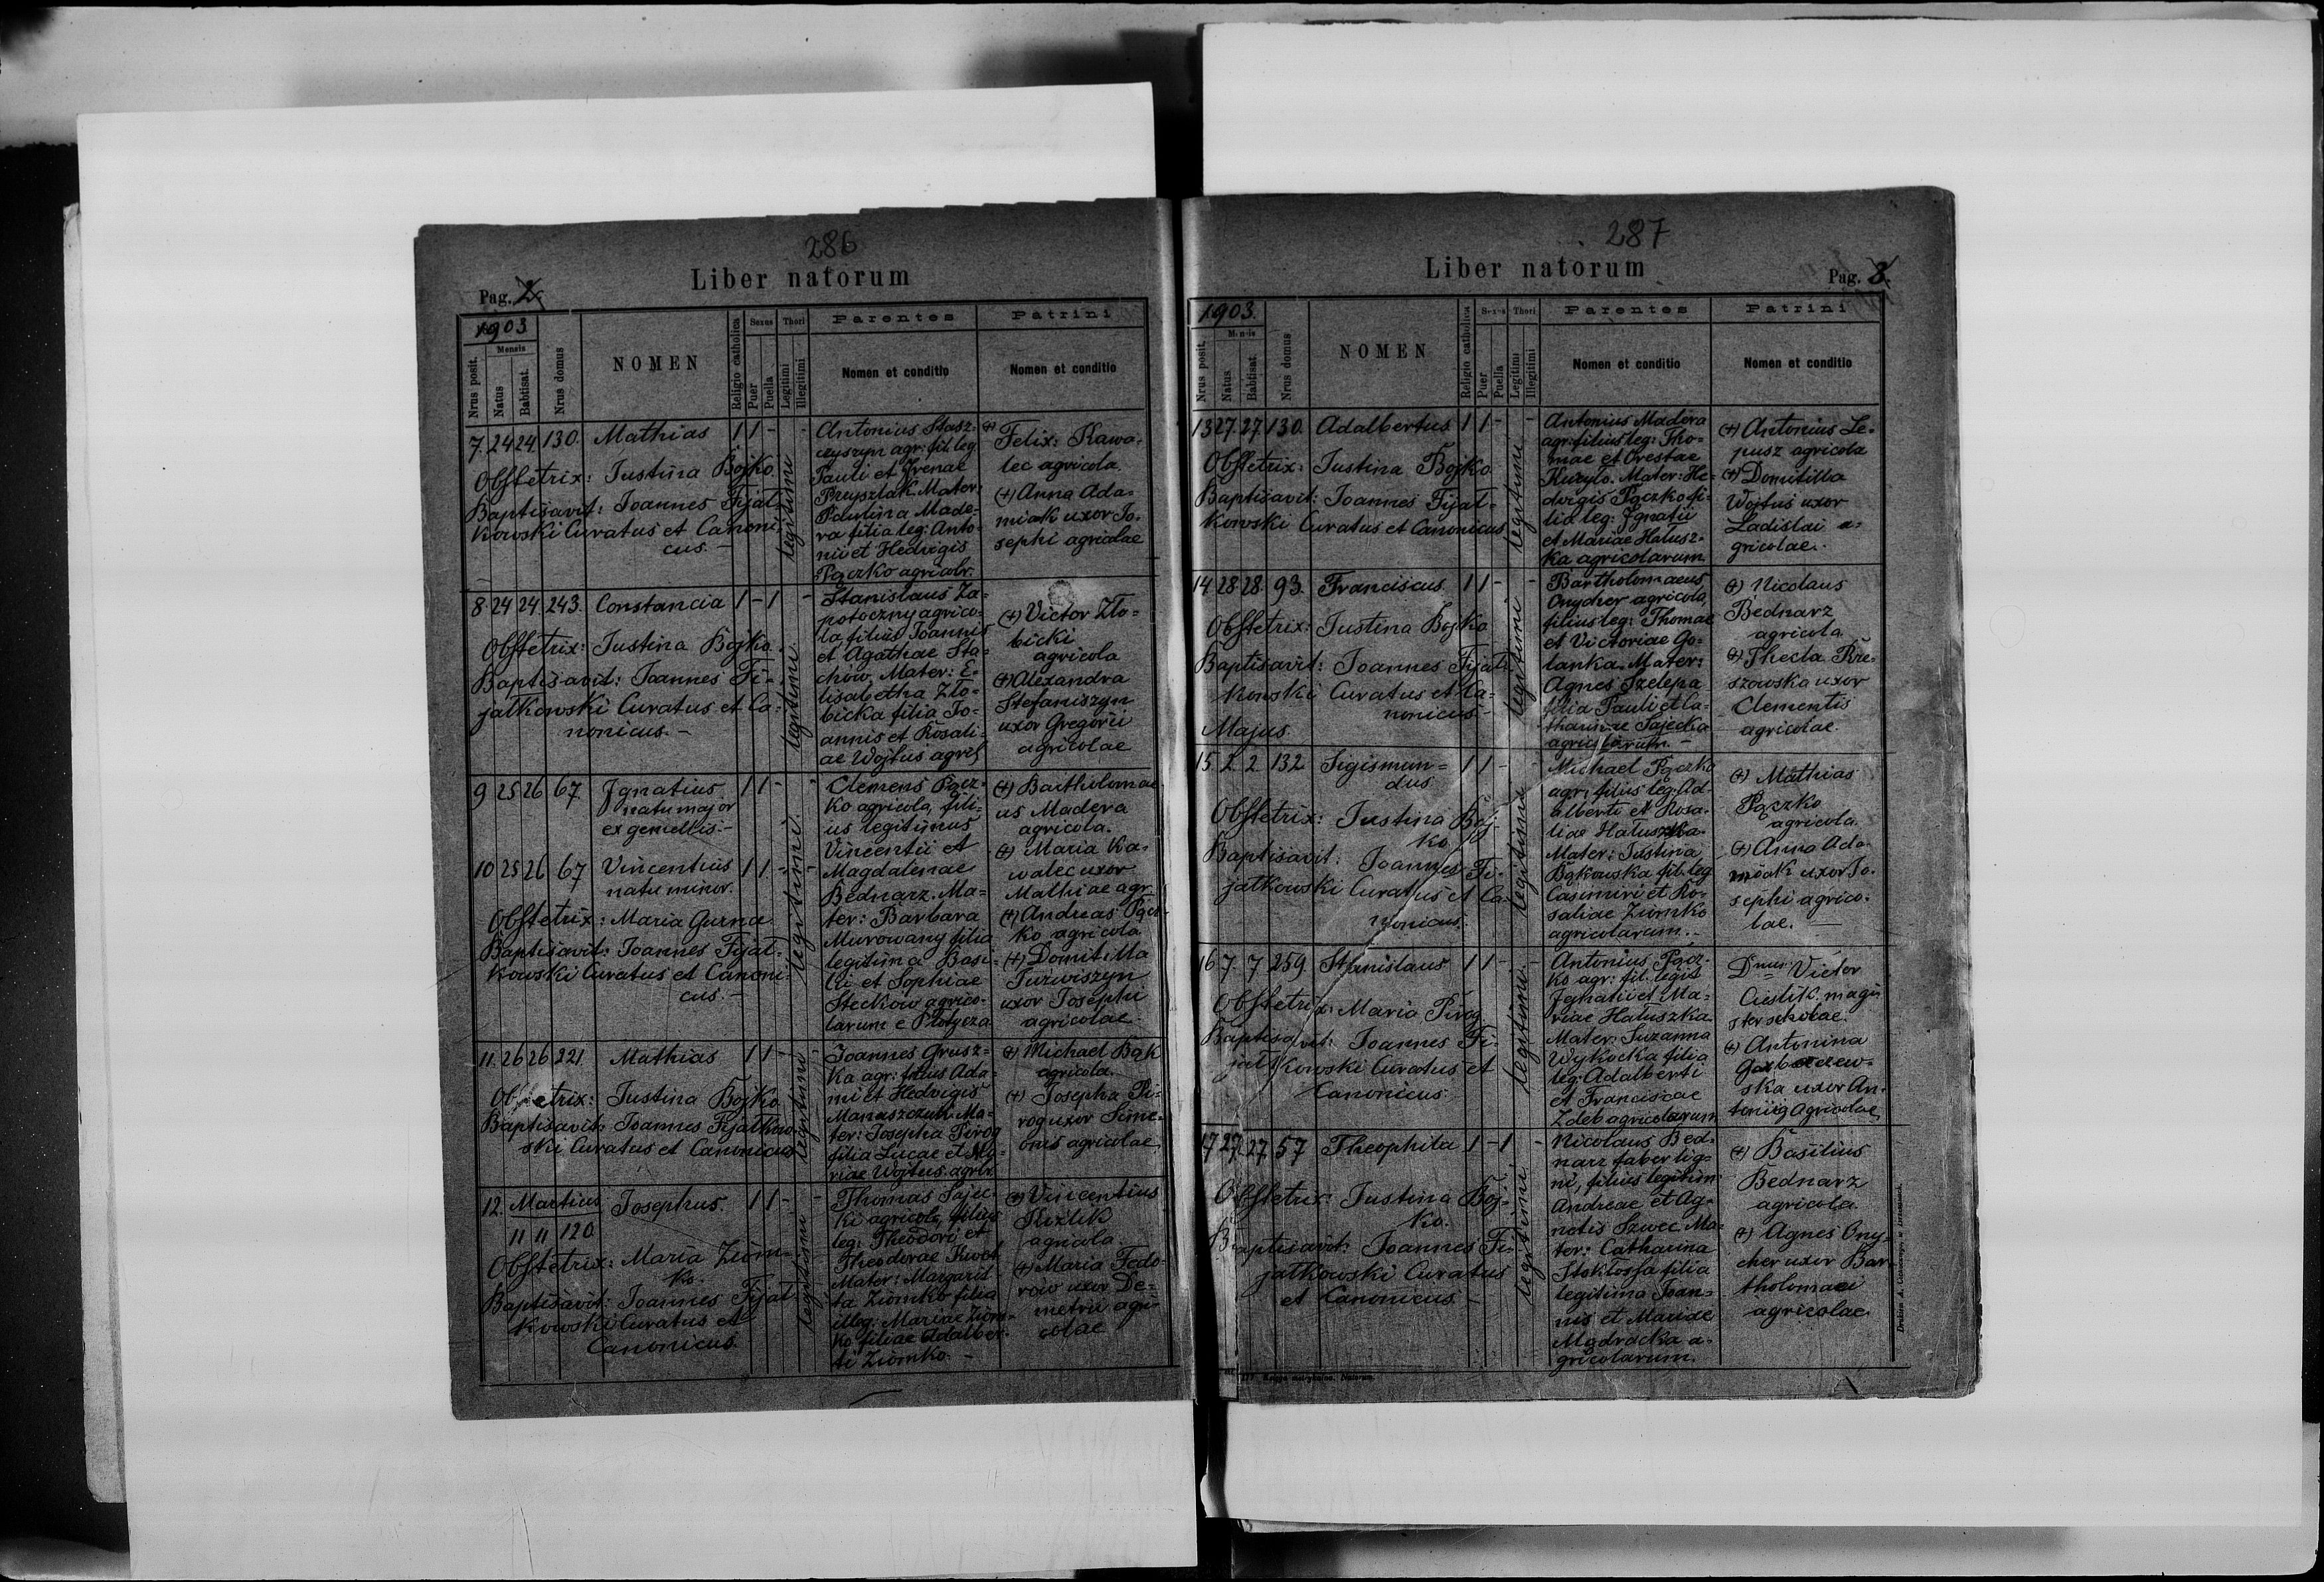 286
Liber natorum
Pag. 2
1903
Mensis
Nrus posit.
Natus
Babtisat.
Nrus domus
NOMEN
Religio catholica
Sexus
Puer
Puella
Thori
Legitimi
Illegitimi
Parentes
Nomen et conditio
Patrini
Nomen et conditio
7. 24 24 130. Mathias 1 1 - -
Obstetrix: Justina Bojko
Baptisavit: Joannes Fijał-
kowski Curatus et Canoni-
cus. -
legitimi
Antonius Stasz-
czyszyn agr: fil. leg
Pauli et Irenae
Przysztak. Mater:
Paulina Made-
ra filia leg: Anto-
nii et Hedvigis
Pączko agricolr.
(+) Felix: Kawa-
lec agricola.
(+) Anna Ada-
miak uxor Jo-
sephi agricolae
8. 24 24. 243. Constancia 1 - 1 -
Obstetrix: Justina Bojko.
Baptisavit: Joannes Fi-
jałkowski Curatus et Ca-
nonicus. -
legitimi.
Stanislaus Za-
potoczny agrico-
la, filius Joannis
et Agathae Sta-
chów, Mater: E-
lisabetha Zło-
bicka filia Jo-
annis et Rosali-
ae Wojtus agrcl
(+) Victor Zło-
bicki
agricola
(+) Alexandra
Stefaniszyn
uxor Gregorii
agricolae
9 25 26 67. Ignatius 1 1 - -
natu major
ex gemellis. -
10 25 26 67 Vincentius 1 1 - -
natu minor.
Obstetrix: Maria Gurna
Baptisavit: Joannes Fijał-
kowski Curatus et Canoni-
cus. -
legitimi.
Clemens Pącz-
ko agricola, fili-
us legitimus
Vincentii et
Magdalenae
Bednarz. Ma-
ter: Barbara
Murowany filia
legitima Basi-
lii et Sophiae
Steckow agrico-
larum e Płotycza
(+) Bartholomae
us Madera
agricola.
(+) Maria Ka-
walec uxor
Mathiae agr
(+) Andreas Pącz-
ko agricola
(+) Domitilla
Jurwiszyn
uxor Josephi
agricolae
11. 26 26 221. Mathias 1 1 - -
Obstetrix: Justina Bojko
Baptisavit: Joannes Fijałkow-
ski Curatus et Canonicus
legitimi
Joannes Grusz-
ka agr: filius Ada-
mi et Hedvigis
Manaszczuk. Ma-
ter: Josepha Pirog
filia Lucae et Ma-
riae Wojtus. agrlr.
(+) Michael Bąk
agricola.
(+) Josepha Pi-
rog uxor Sime-
onis agricolae
12. Martius Josephus. 1 1 - -
11 11 120
Obstetrix: Maria Ziom-
ko.
Baptisavit: Joannes Fijał-
kowski Curatus et
Canonicus.
legitimi
Thomas Saje-
ki agricola, filius
leg: Theodori et
Theodorae Kwot
Mater: Margaris
ta Ziomko filia
illeg: Mariae Ziom-
ko filiae Adalber-
ti Ziomko. -
(+) Vincentius
agricola.
(+) Maria Fedo-
row uxor De-
metrii agri-
colae
287
Liber natorum
Pag. 3
1903.
Mensis
Nrus posit.
Natus
Babtisat.
Nrus domus
NOMEN
Religio catholica
Sexus
Puer
Puella
Thori
Legitimi
Illegitimi
Parentes
Nomen et conditio
Patrini
Nomen et conditio
13 27. 27 130. Adalbertus 1 1 - -
Obstetrix: Justina Bojko
Baptisavit: Joannes Fijał-
kowski Curatus et Canonicus
legitimi
Antonius Madera
agr: filius leg: Tho-
mae et Orestae
Kuryło. Mater: He-
dvigis Pączko fi-
lia leg: Ignatii
et Mariae Hałusz-
ka agricolarum
(+) Antonius Le-
pusz agricola
(+) Domitilla
Wojtus uxor
Ladislai a-
gricolae.
14 28 28. 93. Franciscus. 1 1 - -
Obstetrix: Justina Bojko
Baptisavit: Joannes Fijał-
kowski Curatus et Ca-
nonicus. -
legitimi
Bartholomaeus
Onycher agricola,
filius leg: Thomae
et Victoriae Go-
lanka. Mater:
Agnes Szelepa
filia Pauli et Ca-
tharinae Sajecka
agricolarum. -
(+) Nicolaus
Bednarz
agricola.
(+) Thecla Rze-
szowska uxor
Clementis
agricolae.
Majus
15. 2. 2 132 Sigismun- 1 1 - -
dus
Obstetrix: Justina Boj-
ko
Baptisavit: Joannes Fi-
jałkowski Curatus et Ca-
nonicus.
legitimi
Michael Pączko
agr, filius leg: Ad-
alberti et Rosa-
liae Hałuszka.
Mater: Justina
Bąkowska fil. leg
Casimiri et Ro-
saliae Ziomko
agricolarum. -
(+) Mathias
Pączko
agricola.
(+) Anna Ada-
miak uxor Jo-
sephi agrico-
lae. -
16 7. 7 259 Stanislaus 1 1 - -
Obstetrix: Maria Pirog.
Baptisavit: Joannes Fi-
jałkowski Curatus et
Canonicus.
legitimi.
Antonius Pącz-
ko agr. fil. legit
Ignatii et Ma-
riae Hałuszka.
Mater: Suzanna
Wykocka filia
leg: Adalberti
et Franciscae
Zdeb agricolarum
Dnus Victor
Cieslik. magi
ster scholae.
(+) Antonina
ska uxor An-
tonii agricolae
17 27. 27 57 Theophila 1 - 1 -
Obstetrix: Justina Boj-
ko.
Baptisavit: Joannes Fi-
jałkowski Curatus
et Canonicus. -
legitimi
Nicolaus Bed-
narz faber lig-
ni, filius legitim
Andreae et Ag-
netis Szwec Ma-
ter: Catharina
Stokłossa filia
legitima Joan-
nis et Mariae
Mądracka a-
gricolarum.
(+) Basilius
Bednarz
agricola.
(+) Agnes Ony-
cher uxor Bar-
tholomaei
agricolae.